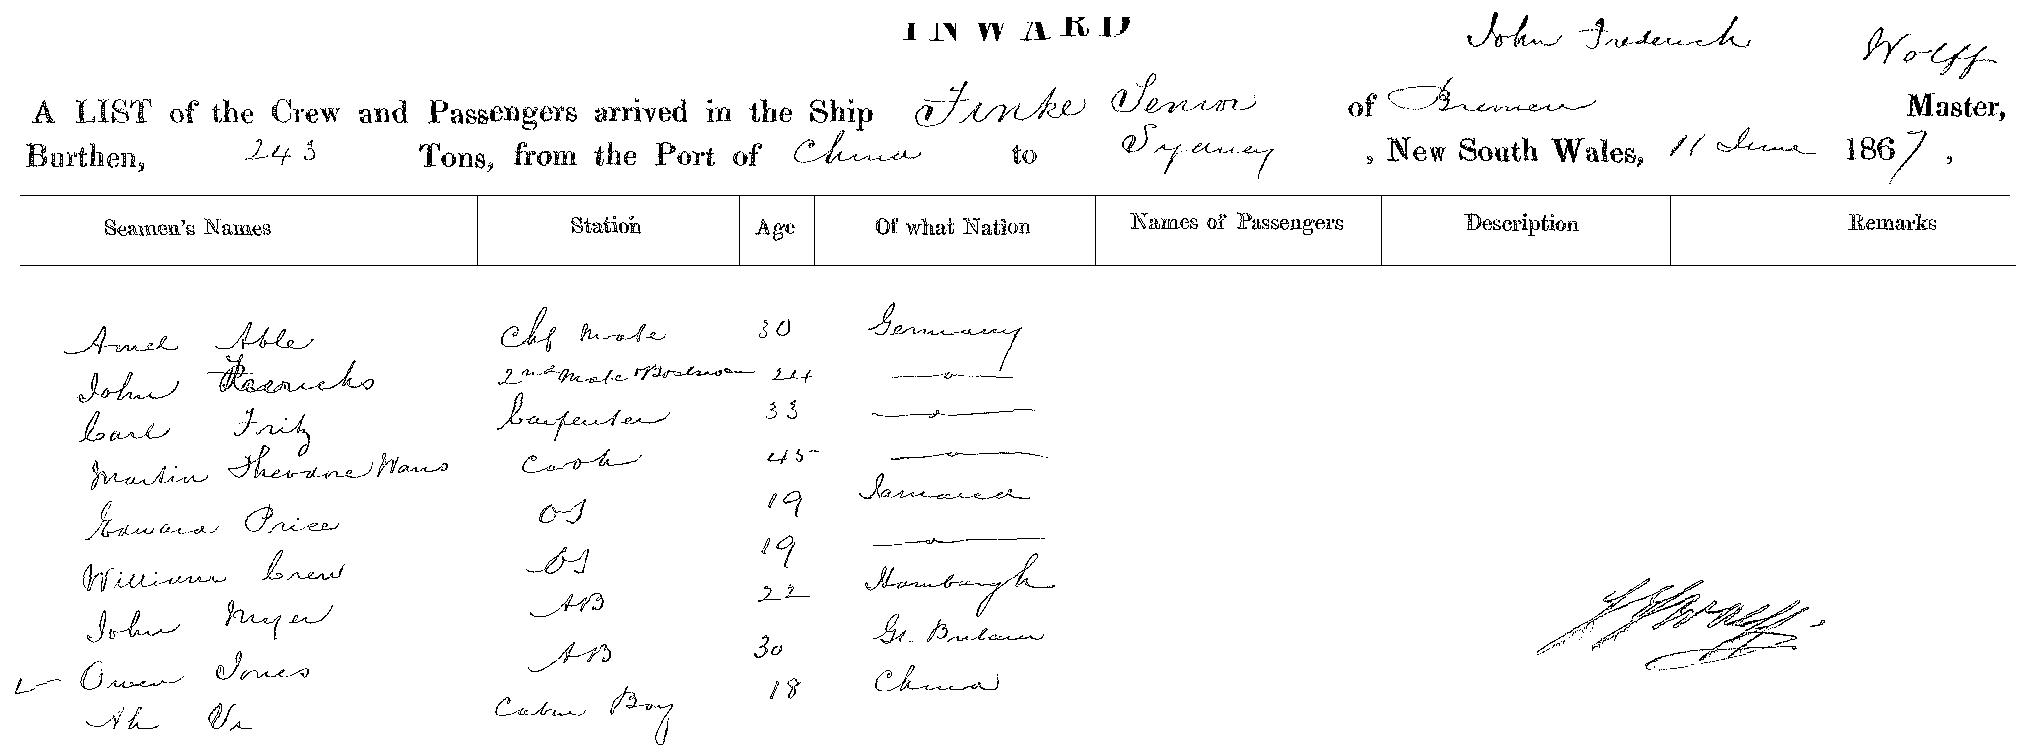 INWARD
John Frederick Wolff
A LIST of the Crew and Passengers arrived in the Ship Finke Senior of Bremen Master,
Burthen, 243 Tons, from the Port of China to Sydney, New South Wales, 11 June 1867,
Seamen's Names Station Age Of what Nation Names of Passengers Description Remarks
Able Chf Mate 30 Germany
John 2nd Mate 24 —o—
Carl Fritz Carpenter 33 —o—
Martin Theodore Cook 45 —o—
Edward Price OS 19
William Crew OS 19 —o—
John Myer AB 22 Hamburgh
Owen Jones AB 30 Gt. Britain
Ah Cabin Boy 18 China